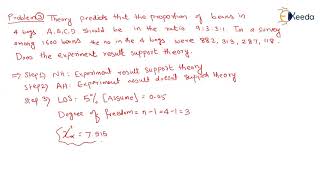 Ekeeda
Problem② Theory predicts that the proportion of beans in
4 bags A,B,C,D should be in the ratio 9:3:3:1. In a survey
among 1600 beans the no in the 4 bags were 882, 313, 287, 118.
Does the experiment result support theory.
⇒ Step1) NH: Experiment result support theory
Step2) AH: Experiment result doesn't support theory
Step 3) LOS = 5% [Assume] = 0.05
Degree of freedom = n-1 = 4-1 = 3
= 7.815